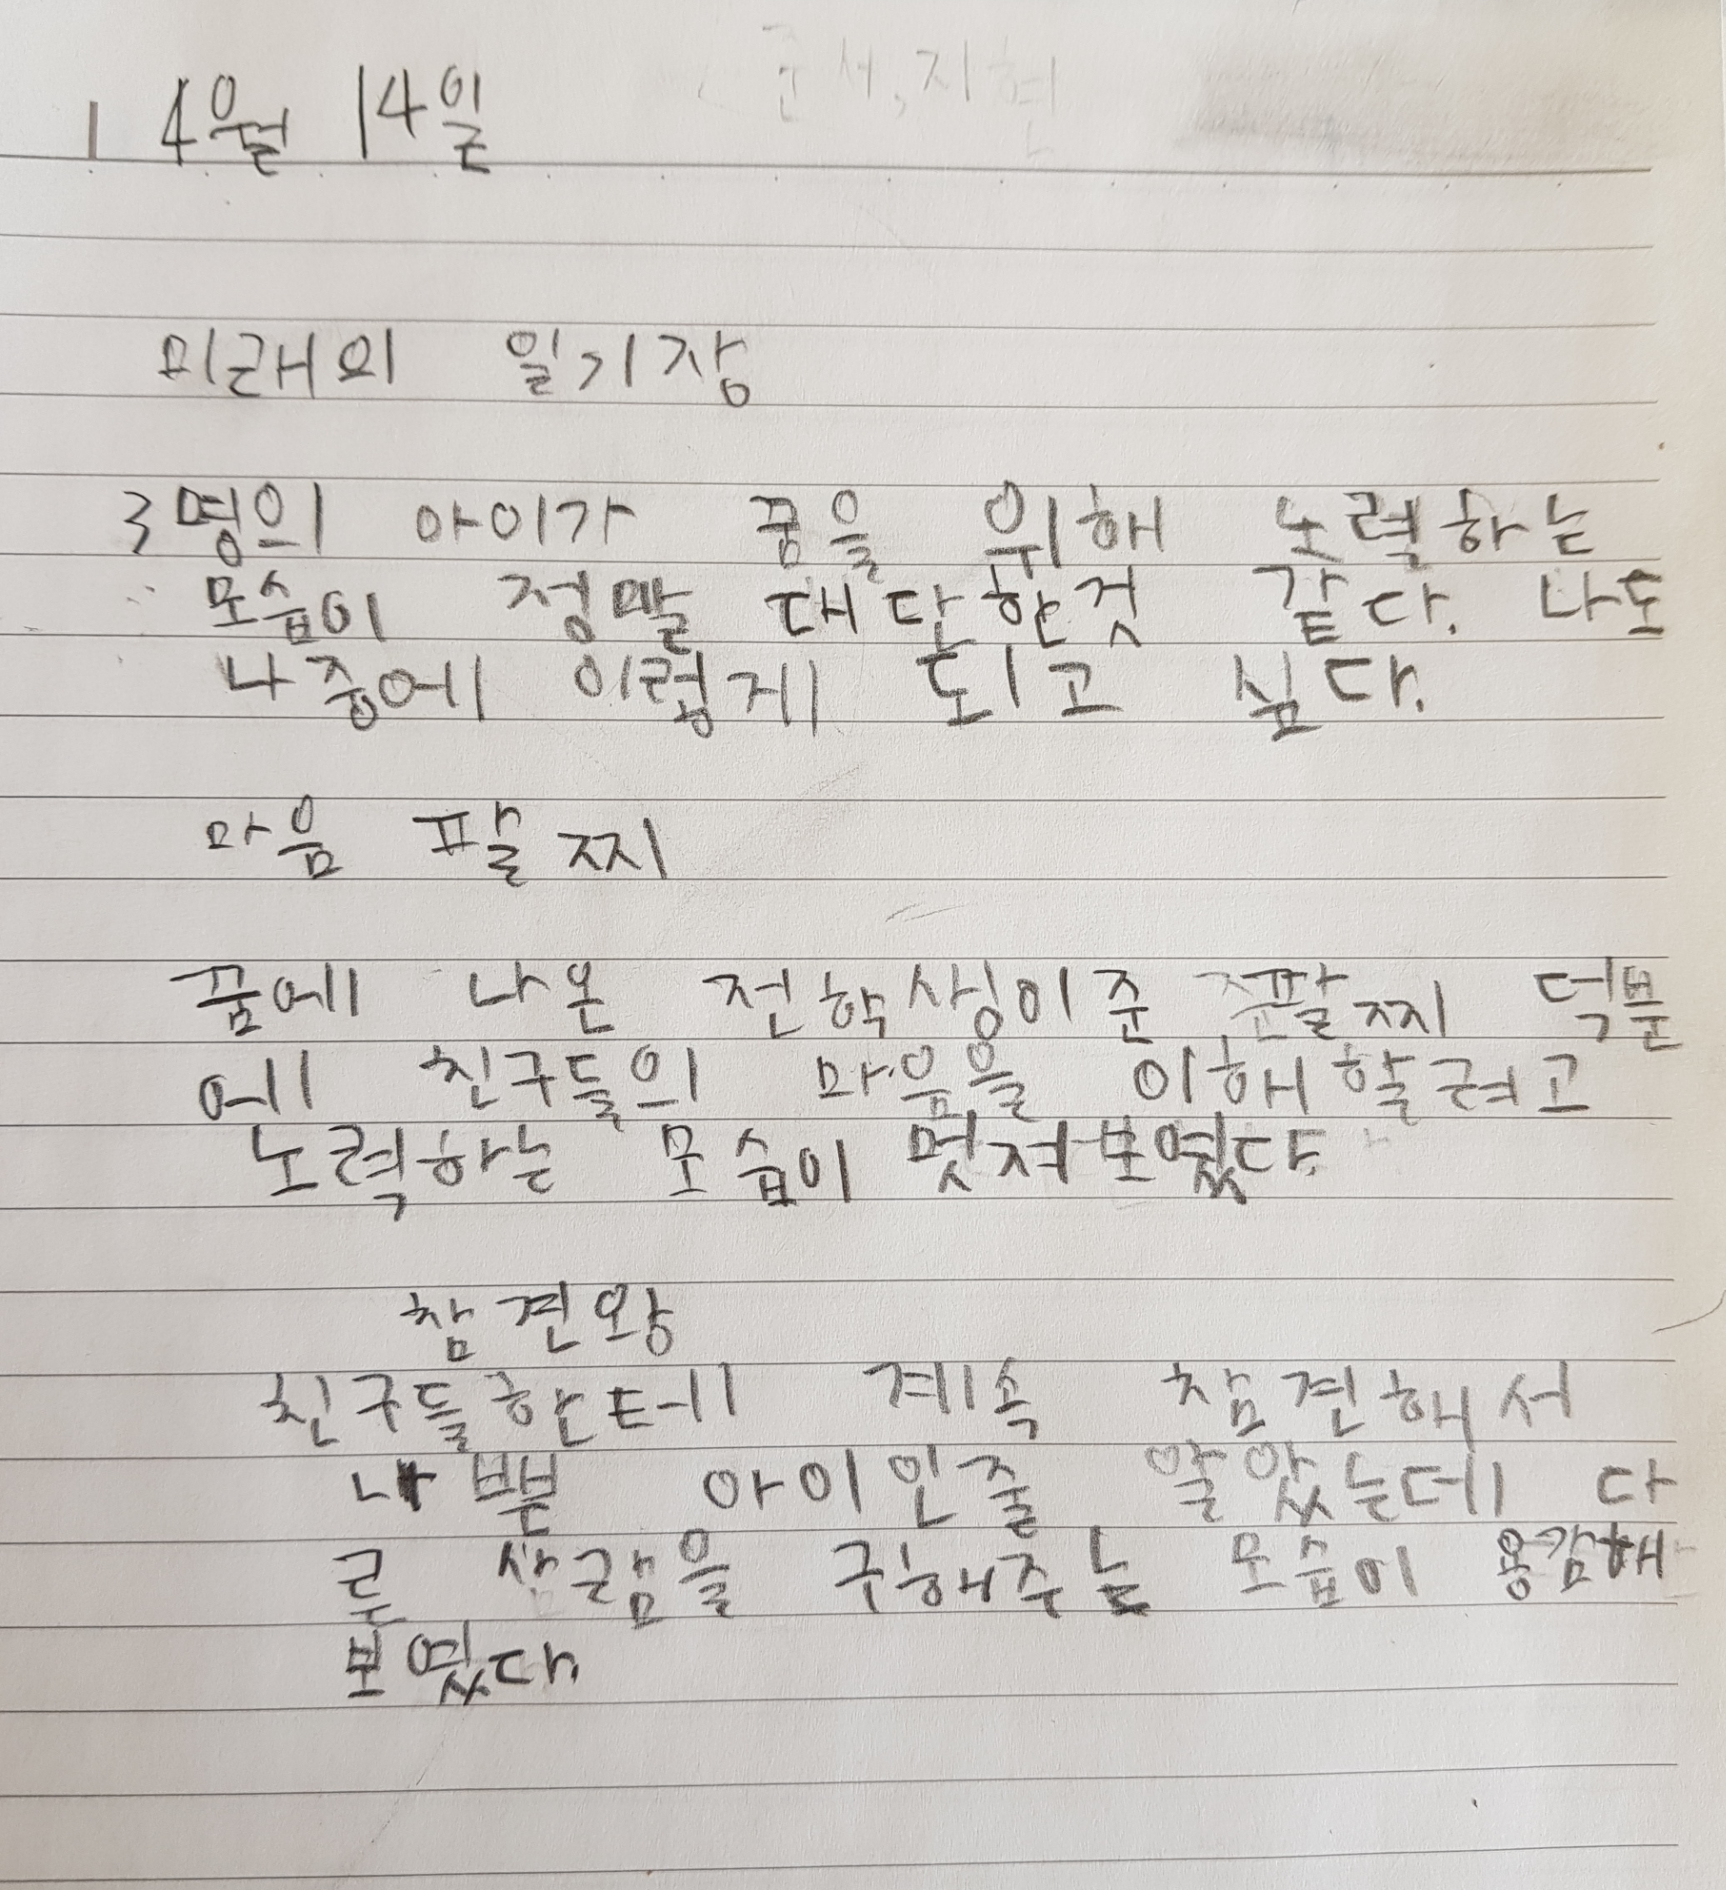 4월 14일
준서, 지현
미래의 일기장
3명의 아이가 꿈을 위해 노력하는
모습이 정말 대단한것 같다. 나도
나중에 이렇게 되고 싶다.
마음 팔찌
꿈에 나온 전학생이준 팔찌 덕분
에 친구들의 마음을 이해할려고
노력하는 모습이 멋져보였다.
참견왕
친구들한테 계속 참견해서
나쁜 아이인줄 알았는데 다
른 삼람을 구해주는 모습이 용감해
보였다.